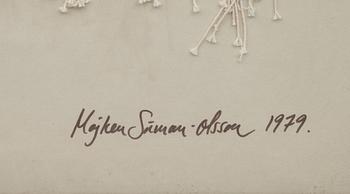 Majken Siman-Olsson 1979.